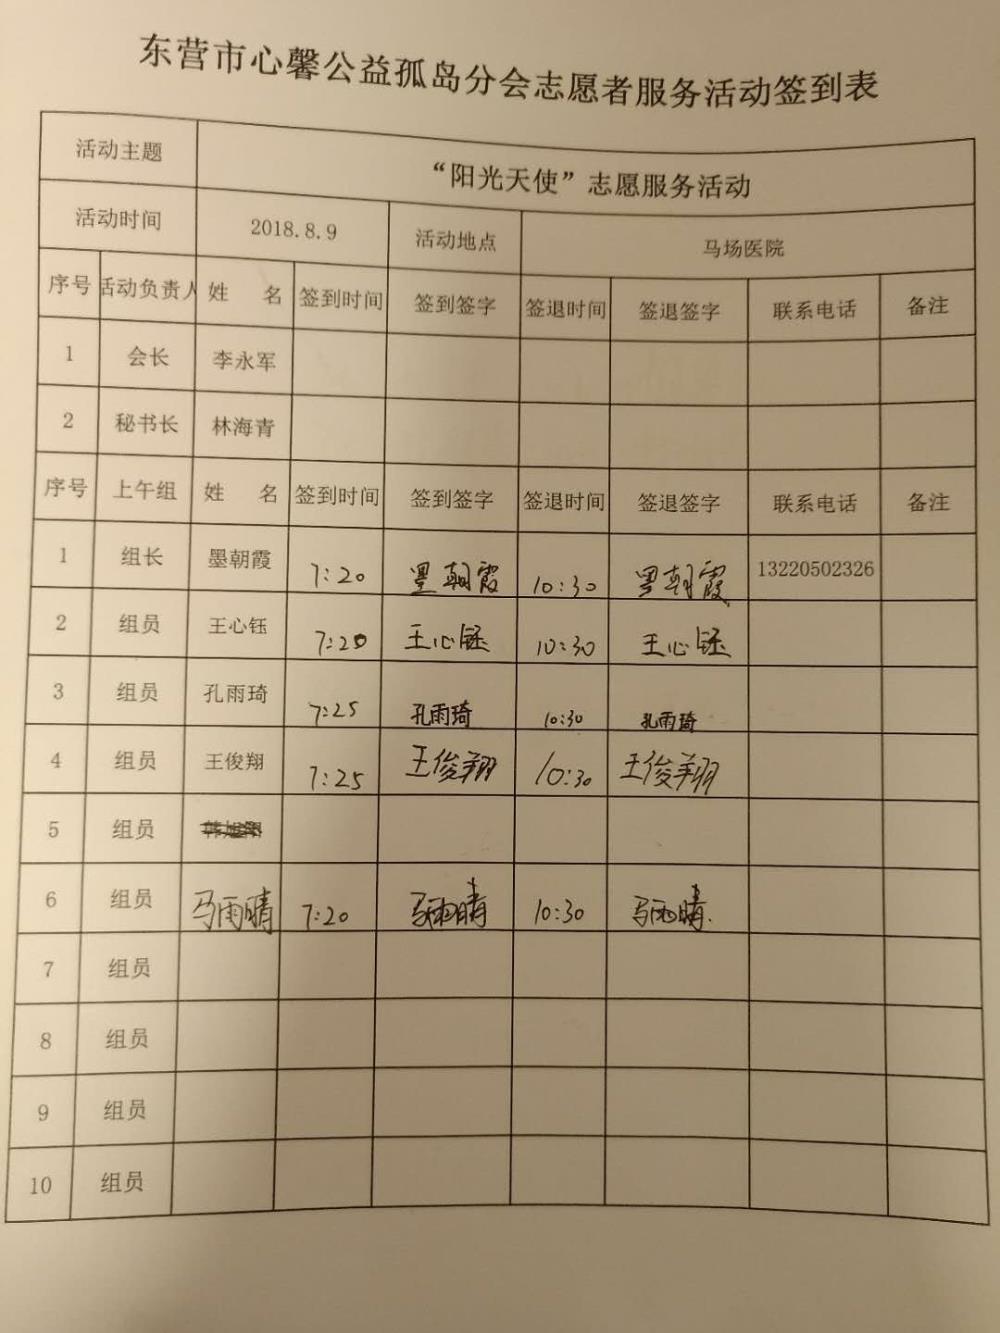 东营市心馨公益孤岛分会志愿者服务活动签到表
活动主题 “阳光天使”志愿服务活动
活动时间 2018.8.9 活动地点 马场医院
序号 活动负责人 姓 名 签到时间 签到签字 签退时间 签退签字 联系电话 备注
1 会长 李永军
2 秘书长 林海青
序号 上午组 姓 名 签到时间 签到签字 签退时间 签退签字 联系电话 备注
1 组长 墨朝霞 7:20 墨朝霞 10:30 墨朝霞 13220502326
2 组员 王心钰 7:20 王心钰 10:30 王心钰
3 组员 孔雨琦 7:25 孔雨琦 10:30 孔雨琦
4 组员 王俊翔 7:25 王俊翔 10:30 王俊翔
5 组员
6 组员 马雨晴 7:20 马雨晴 10:30 马雨晴
7 组员
8 组员
9 组员
10 组员